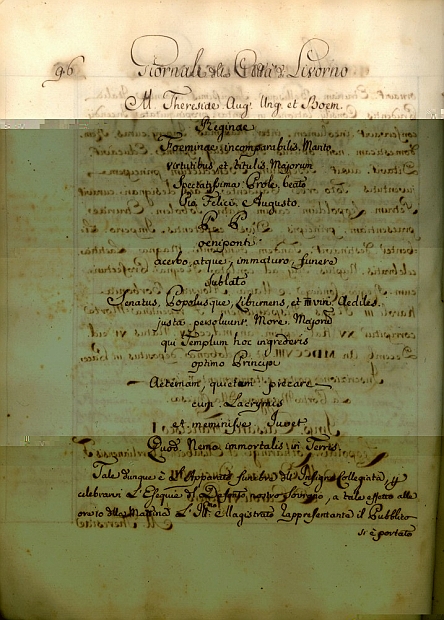 96 Giornale della Città di Livorno
M. Theresiae Aug. Ung. et Boem.
Reginae
Foeminae incomparabilis Manto
virtutibus, et titulis Majorum
Spectatissima Prole, beato
Pio Felici Augusto
P. P.
oeniponti
acerbo, atque, immaturo, funere
sublato
Senatus Populusque, Liburnens, et IIIIviri Aediles
justa persolvunt, More Majorũ
qui Templum hoc ingrederis
optimo Principi
Aeternam, quietem precare
cum Lacrymis
et meminisse Juvet
Quod Nemo immortalis in Terris.
Tale dunque è l'Apparato funebre dell'Insigne Collegiata, p
celebrarvi L'Eseque del Defonto nostro Sovrano, a tale effetto alle
ore 10 della Mattina L'Ill.mo Magistrato Rappresentante il Pubblico
si è portato